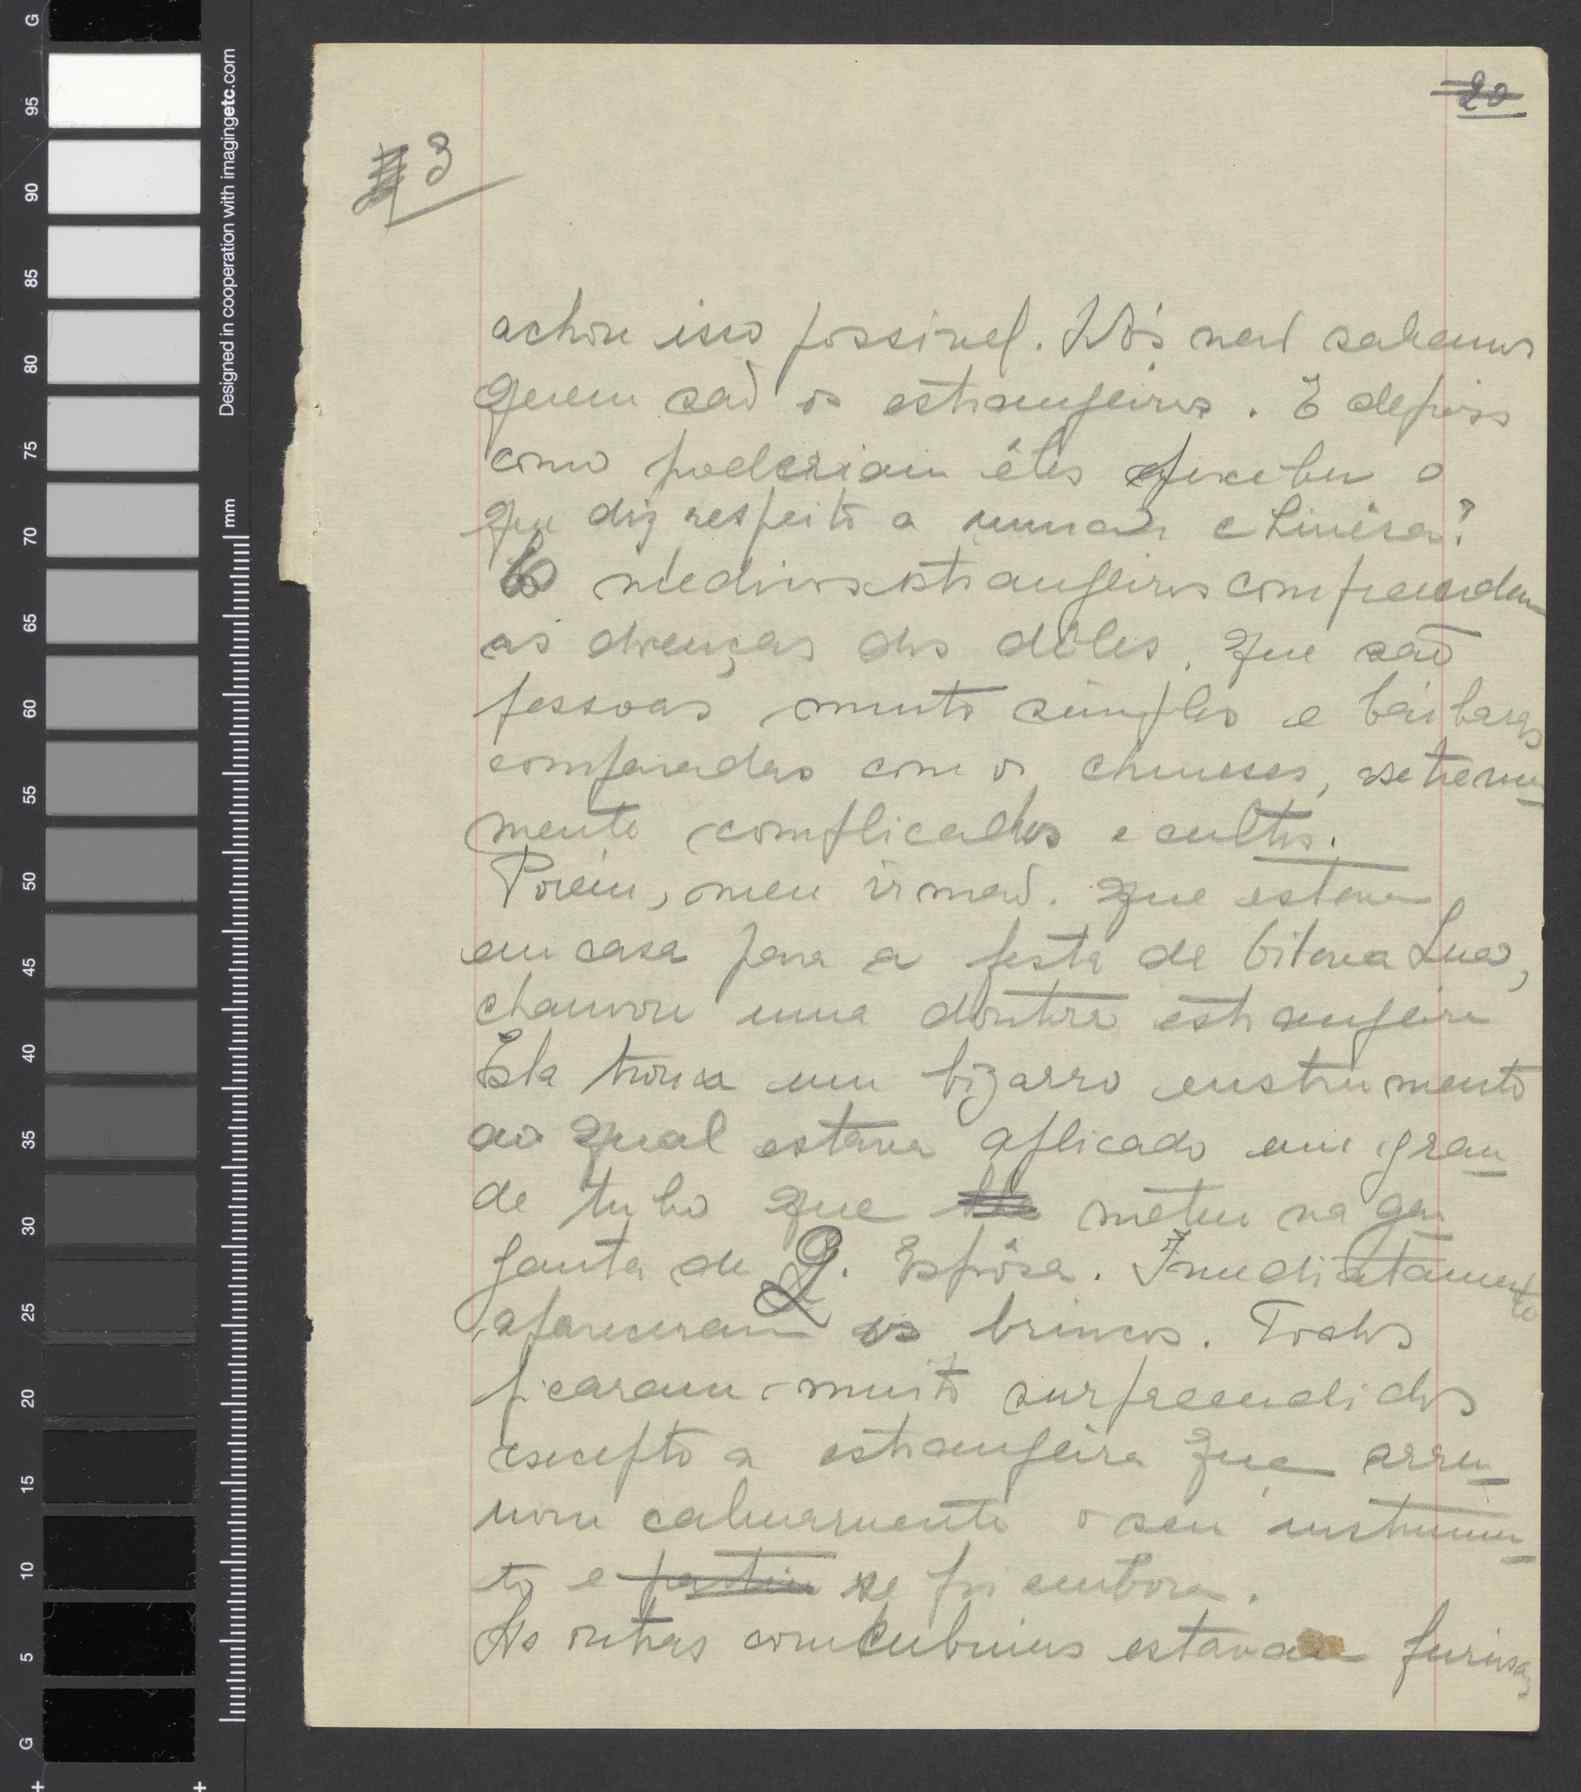 20
3
achou isso possivel. Nós nem sabemos
quem são os estrangeiros. E depois
como poderiam êles perceber o
que diz respeito a uma chinêsa?
Os medicos estrangeiros compreendem
as doenças dos dêles, que são
pessoas muito simples e bárbaras
comparadas com os chineses, extrema-
mente complicados e cultos.
Porém, meu irmão. que estava
em casa para a festa da Oitava Lua,
chamou uma doutora estrangeira
Ela trouxe um bizarro enstrumento
ao qual estava aplicado um gran-
de tubo que meteu na gar-
ganta de Q. Espôsa. Imediatamente
apareceram os brincos. Todos
ficaram muito surpreendidos
excepto a estrangeira que arru-
mou calmamente o seu instrumen-
to e partiu se foi embora.
As outras concubinas estavam furiosas
G
95
90
85
80
75
70
65
60
55
50
45
40
35
30
25
20
15
10
5
G
Designed in cooperation with imagingetc.com
mm